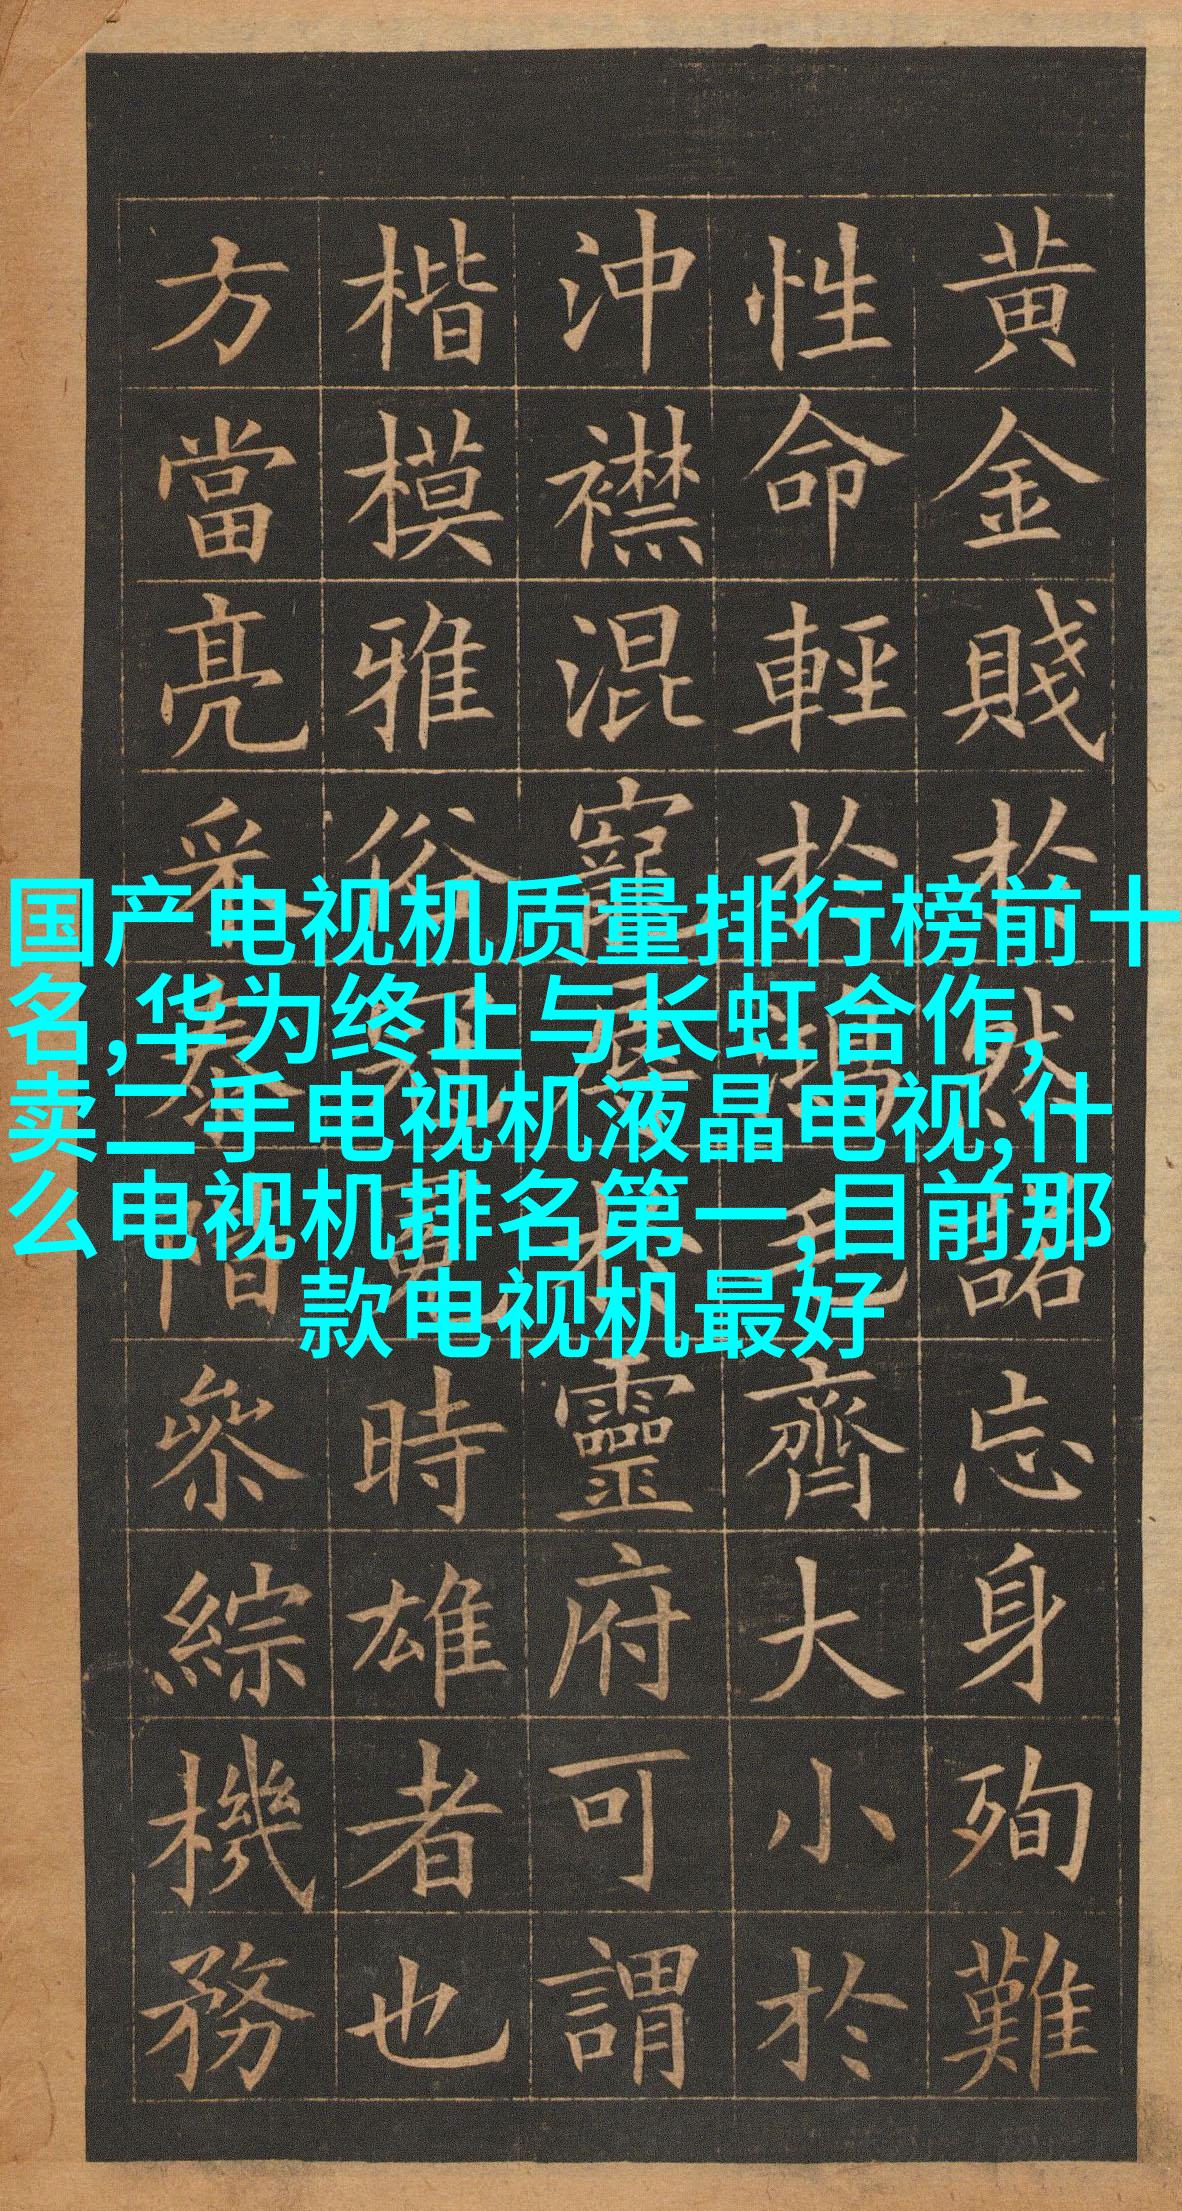 黄金賤於然諾忘身殉難
性命輕於鴻毛齊大小於
沖襟混寵辱於靈府可謂
楷模雅俗冠冕時雄者也
方當亮采泰階參綜機務
国产电视机质量排行榜前十
名,华为终止与长虹合作,
卖二手电视机液晶电视,什
么电视机排名第一,目前那
款电视机最好